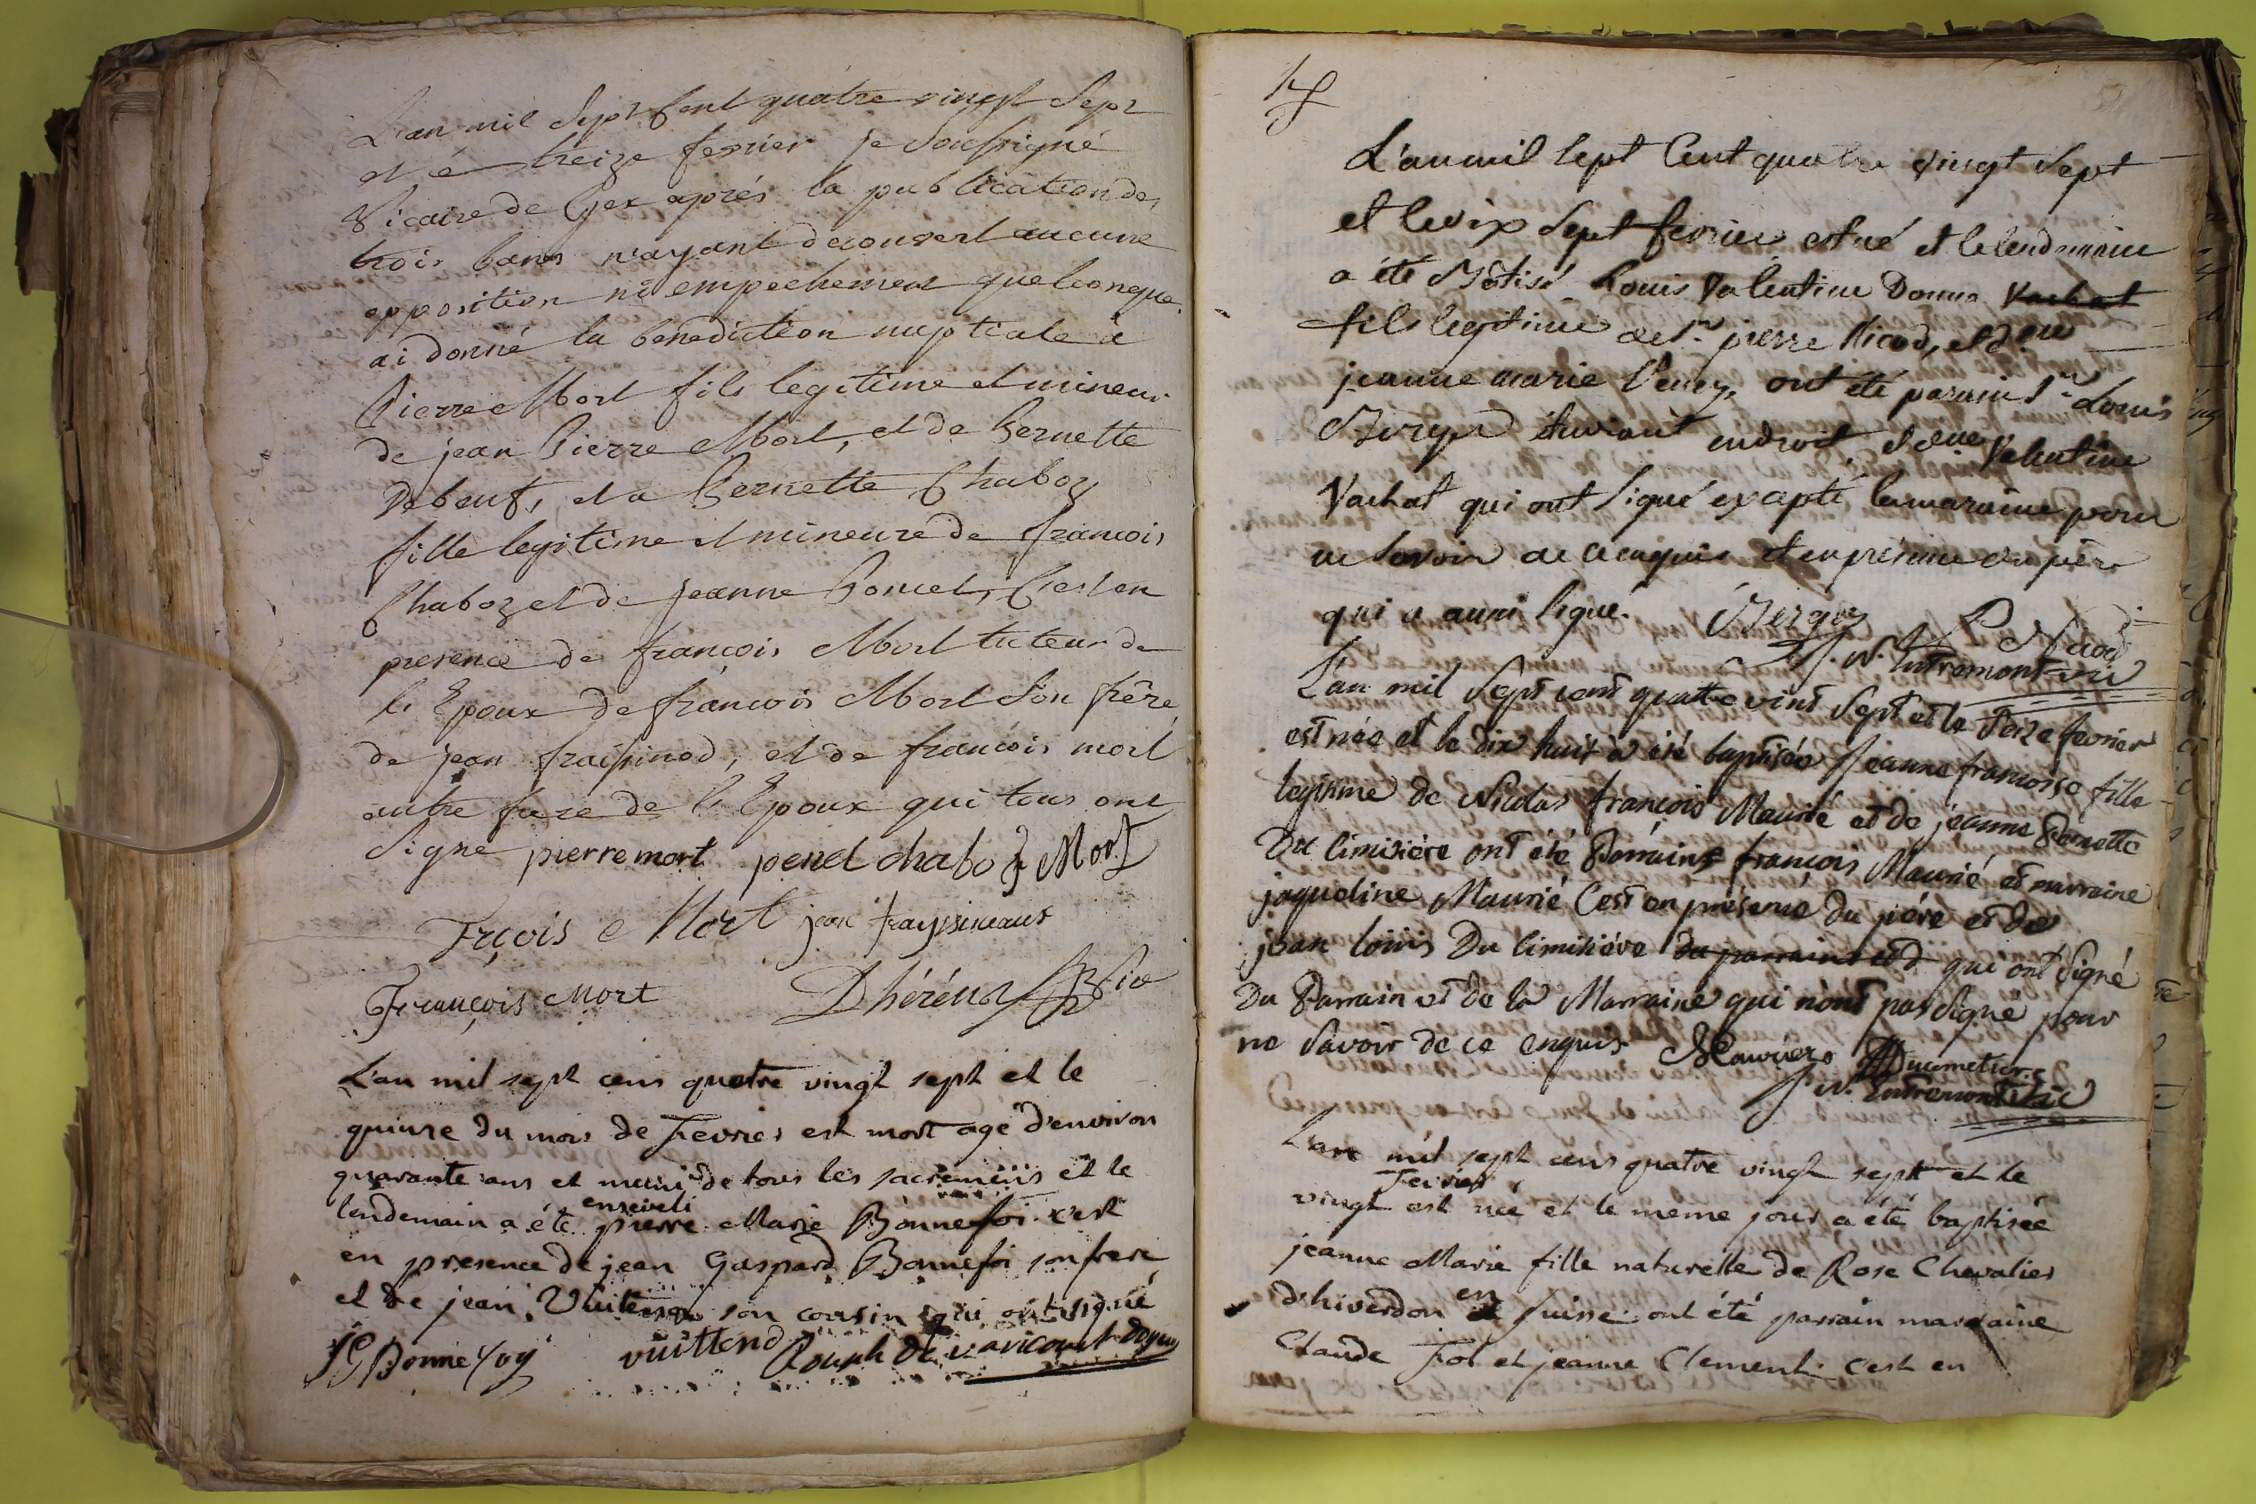 L'an mil sept cent quatre vingt sept
et le treize fevrier je soussigné
Vicaire de Gex aprés la publication des
trois bans n'ayant decouvert aucune
opposition ni empechement quelconque
ai donné la benediction nuptiale à
Pierre Mort fils legitime et mineur
de jean Pierre Mort, et de Pernette
Debeuf, et a Pernette Chaboz
fille legitime et mineure de francois
Chaboz et de Jeanne Poncet, C'est en
presence de françois Mort tuteur de
l'Epoux de françois Mort son frère
de jean fraissinod, et de françois mort
autre frere de l'Epoux qui tous ont
signé pierre mort penel chaboz Mort
frçois Mort jean frayssineaux
François Mort Dhérens Vic
L'an mil sept cens quatre vingt sept et le
quinze du mois de Fevrier est mort agé d'environ
quarante ans et muni de tous les sacremens et le
lendemain a été enseveli pierre Marie Bonnefoi c'est
en presence de jean Gaspard Bonnefoi son frere
et de jean Vuitend son cousin qui ont signé
JG Bonnefoy vuittend Rouph de varicourt doyen
L'an mil sept Cent quatre vingt sept
et le dix sept fevrier est né et le lendemain
a été Bâtisé Louis Valentine Donna Vachat
fils legitime de Sr. pierre Nicod, et dme
jeanne marie Vency, ont été parain Sr Louis
étudiant en droit, et Delle Valentine
Vachat qui ont signé exapté la maraine pour
ne savoir de ce enquis et en présence du père
qui a aussi signé. P Nicod
J. N. Entremont vic
L'an mil sept cent quatre vint sept et le seize fevrier
est née et le dix huit a été baptisée Jeanne francoise fille
legitime de Nicolas françois Maurié et de jeanne Pernette
Du Cimitière ont été Parrain françois Maurié et marraine
jaqueline Maurié C'est en présence du père et de
jean louis Du Cimitiére du parrain et d qui ont signé
Du Parrain et de la Marraine qui n'ont pas signé pour
ne savoir de ce enquis Mauriero Ducimetiere
J. N. Entremont Vic
L'an mil sept cens quatre vingt sept et le
vingt Fevrier est née et le meme jour a été baptisée
jeanne Marie fille naturelle de Rose Chevalier
d'hiverdon en suisse ont été parrain marraine
Claude Fol et jeanne Clement c'est en